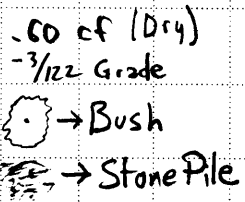 .60 cf (Dry)
-3/122 Grade
→ Bush
→ Stone Pile